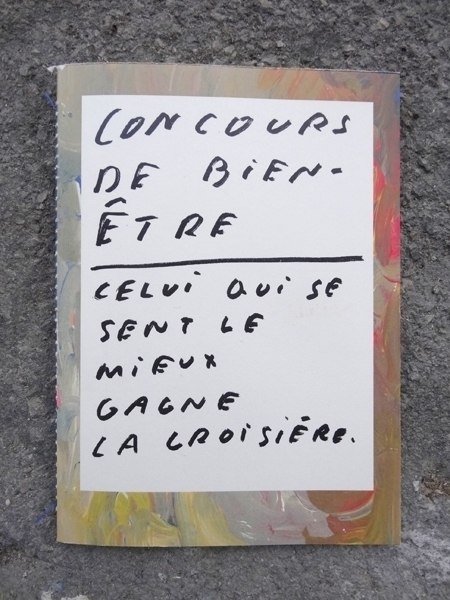 CONCOURS
DE BiEN-
ÊTRE
CELUi QUi SE
SENT LE
MiEUX
GAGNE
LA CROiSiÈRE.